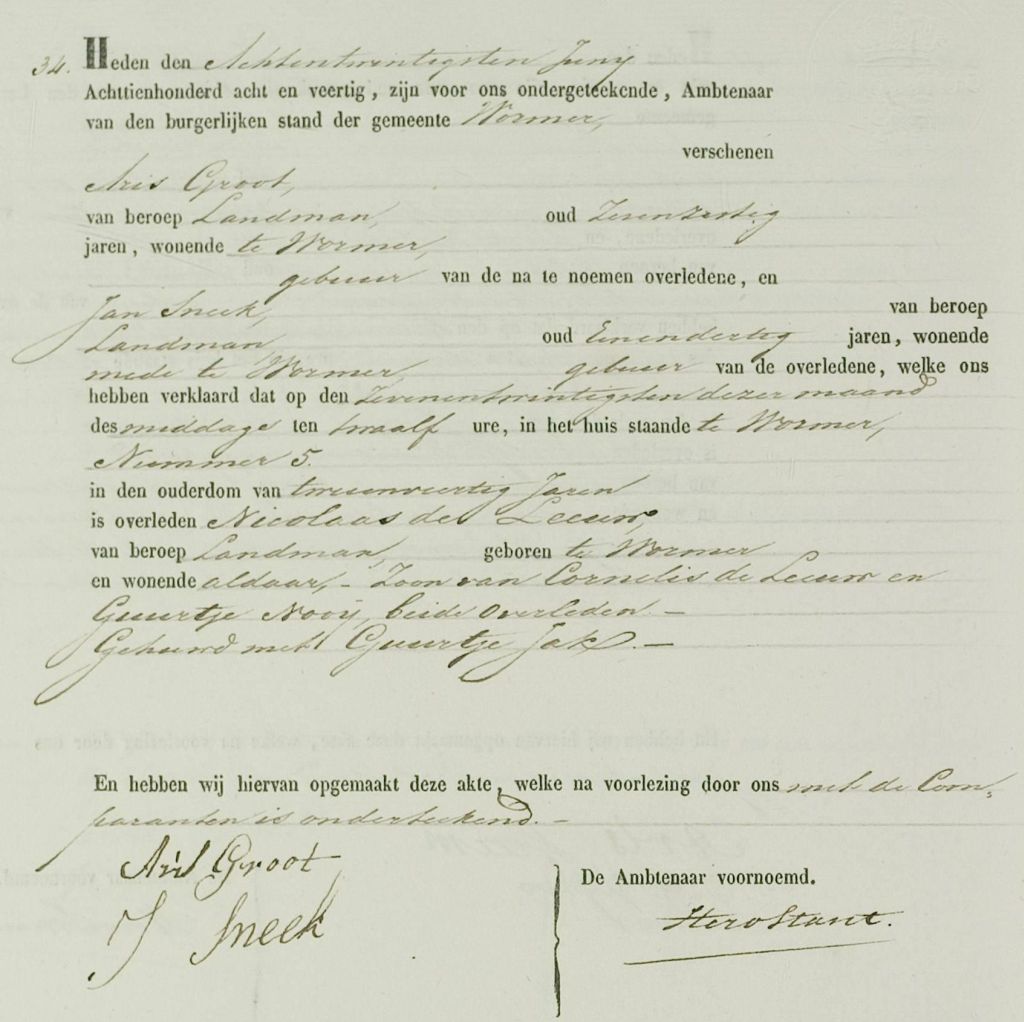 34. Heden den Achtentwintigsten Juny
Achttienhonderd acht en veertig, zijn voor ons ondergeteekende, Ambtenaar
van den burgerlijken stand der gemeente Wormer,
verschenen
Aris Groot,
van beroep Landman, oud Zevenzestig
jaren, wonende te Wormer,
gebuur van de na te noemen overledene, en
Jan Sneek, van beroep
Landman oud Eenendertig jaren, wonende
mede te Wormer, gebuur van de overledene, welke ons
hebben verklaard dat op den Zevenentwintigsten dezer maand
des middags ten twaalf ure, in het huis staande te Wormer,
Nummer 5.
in den ouderdom van tweeenveertig Jaren
is overleden Nicolaas de Leeuw,
van beroep Landman, geboren te Wormer
en wonende aldaar, - Zoon van Cornelis de Leeuw en
Guurtje Nooij, beide overleden -
Gehuwd met Guurtje Jak. -
En hebben wij hiervan opgemaakt deze akte, welke na voorlezing door ons met de Com,
paranten is onderteekend. -
Aris Groot
J Sneek
De Ambtenaar voornoemd.